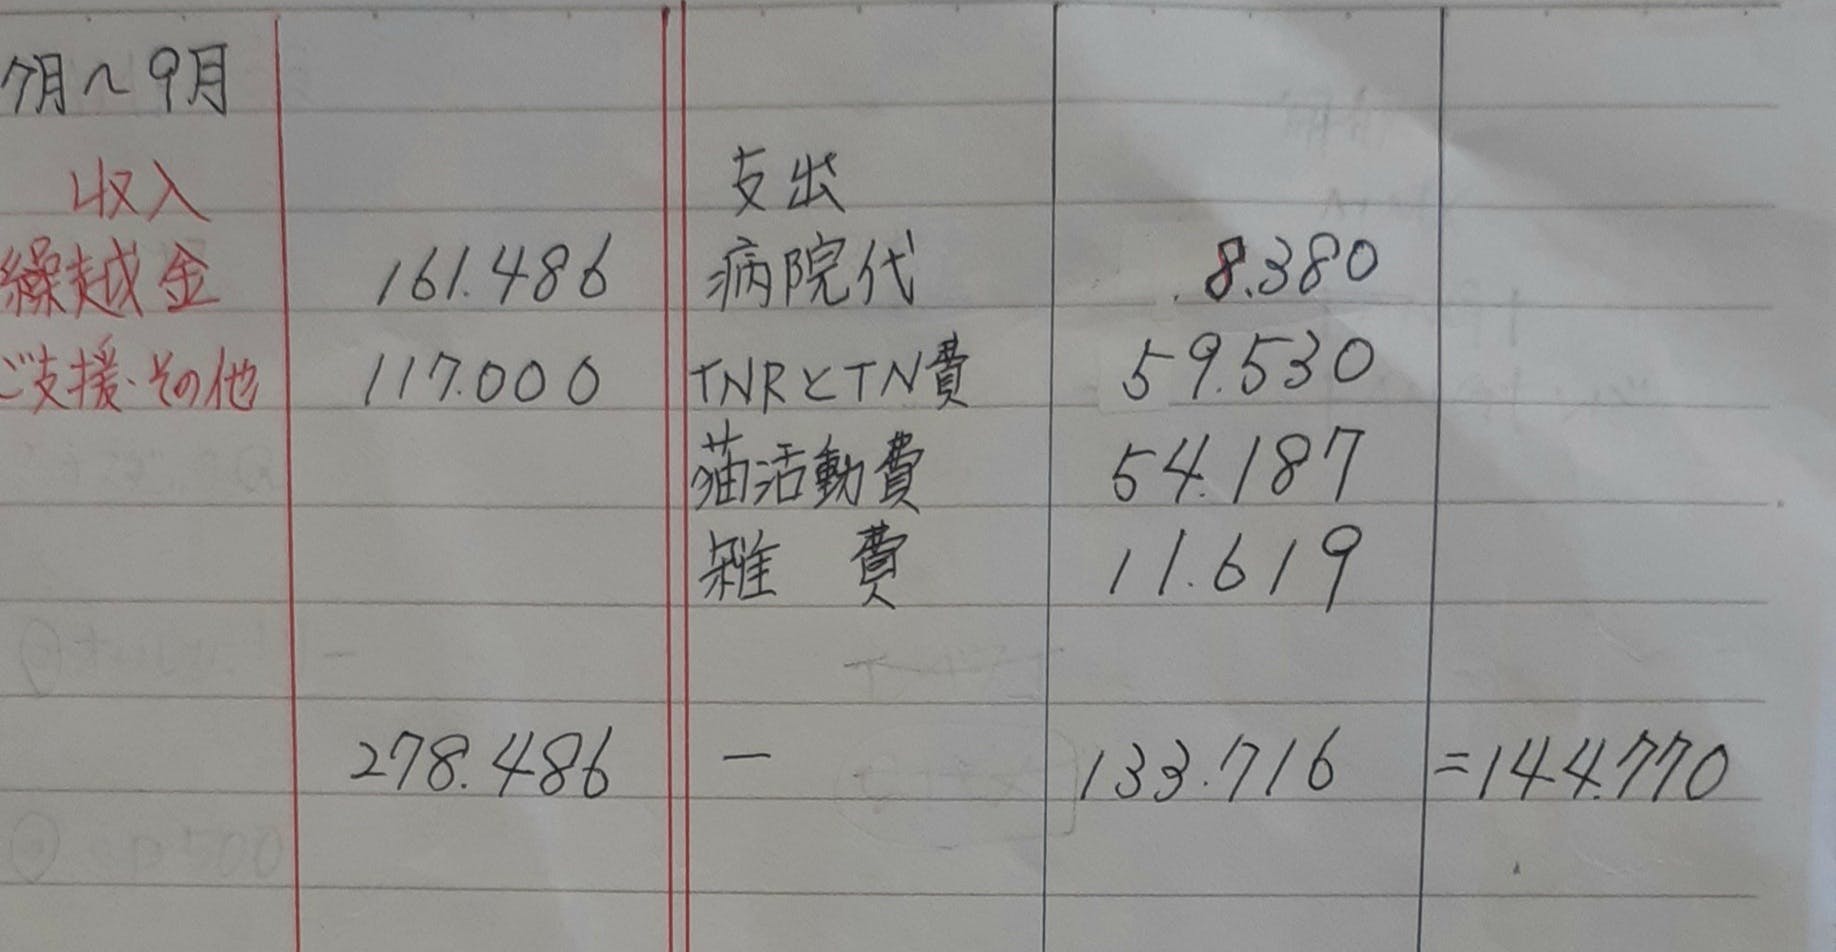 7月〜9月
収入 支出
繰越金 161.486 病院代 8.380
ご支援・その他 117.000 TNRとTN費 59.530
猫活動費 54.187
雑 費 11.619
278.486 － 133.716 =144.770